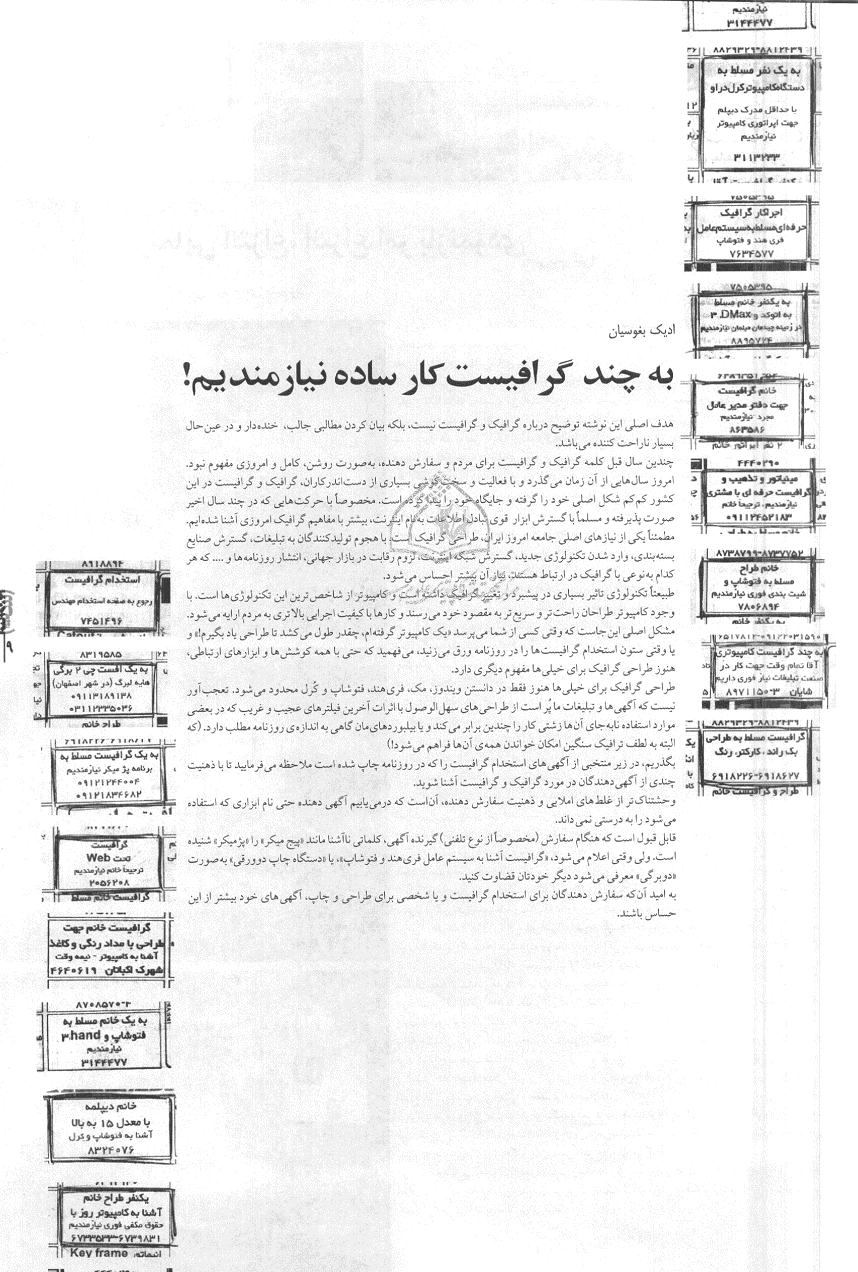 ادیک بغوسیان
به چند گرافیست کار ساده نیازمندیم!
هدف اصلی این نوشته توضیح درباره گرافیک و گرافیست نیست، بلکه بیان کردن مطالبی جالب، خنده‌دار و در عین‌حال
بسیار ناراحت کننده می‌باشد.
چندین سال قبل کلمه گرافیک و گرافیست برای مردم و سفارش دهنده، به‌صورت روشن، کامل و امروزی مفهوم نبود.
امروز سال‌هایی از آن زمان می‌گذرد و با فعالیت و سخت‌کوشی بسیاری از دست‌اندرکاران، گرافیک و گرافیست در این
کشور کم‌کم شکل اصلی خود را گرفته و جایگاه خود را پیدا کرده است. مخصوصاً با حرکت‌هایی که در چند سال اخیر
صورت پذیرفته و مسلماً با گسترش ابزار قوی تبادل اطلاعات به نام اینترنت، بیشتر با مفاهیم گرافیک امروزی آشنا شده‌ایم.
مطمئناً یکی از نیازهای اصلی جامعه امروز ایران، طراحی گرافیک است. با هجوم تولیدکنندگان به تبلیغات، گسترش صنایع
بسته‌بندی، وارد شدن تکنولوژی جدید، گسترش شبکه اینترنت، لزوم رقابت در بازار جهانی، انتشار روزنامه‌ها و .... که هر
کدام به‌نوعی با گرافیک در ارتباط هستند، نیاز آن بیشتر احساس می‌شود.
طبیعتاً تکنولوژی تاثیر بسیاری در پیشبرد و تغییر گرافیک داشته است و کامپیوتر از شاخص‌ترین این تکنولوژی‌ها است. با
وجود کامپیوتر طراحان راحت‌تر و سریع‌تر به مقصود خود می‌رسند و کارها با کیفیت اجرایی بالاتری به مردم ارایه می‌شود.
مشکل اصلی این‌جاست که وقتی کسی از شما می‌پرسد «یک کامپیوتر گرفته‌ام، چقدر طول می‌کشد تا طراحی یاد بگیرم!» و
یا وقتی ستون استخدام گرافیست‌ها را در روزنامه ورق می‌زنید، می‌فهمید که حتی با همه کوشش‌ها و ابزارهای ارتباطی،
هنوز طراحی گرافیک برای خیلی‌ها مفهوم دیگری دارد.
طراحی گرافیک برای خیلی‌ها هنوز فقط در دانستن ویندوز، مک، فری‌هند، فتوشاپ و کُرل محدود می‌شود. تعجب‌آور
نیست که آگهی‌ها و تبلیغات ما پُر است از طراحی‌های سهل‌الوصول با اثرات آخرین فیلترهای عجیب و غریب که در بعضی
موارد استفاده نابه‌جای آن‌ها زشتی کار را چندین برابر می‌کند و یا بیلبوردهای‌مان گاهی به اندازه‌ی روزنامه مطلب دارد. (که
البته به لطف ترافیک سنگین امکان خواندن همه‌ی آن‌ها فراهم می‌شود!)
بگذریم، در زیر منتخبی از آگهی‌های استخدام گرافیست را که در روزنامه چاپ شده است ملاحظه می‌فرمایید تا با ذهنیت
چندی از آگهی‌دهندگان در مورد گرافیک و گرافیست آشنا شوید.
وحشتناک‌تر از غلط‌های املایی و ذهنیت سفارش دهنده، آن‌است که درمی‌یابیم آگهی دهنده حتی نام ابزاری که استفاده
می‌شود را به درستی نمی‌داند.
قابل قبول است که هنگام سفارش (مخصوصاً از نوع تلفنی) گیرنده آگهی، کلماتی ناآشنا مانند «پیج میکر» را «پژمیکر» شنیده
است. ولی وقتی اعلام می‌شود، «گرافیست آشنا به سیستم عامل فری‌هند و فتوشاپ»، یا «دستگاه چاپ دوورقی» به‌صورت
«دوبرگی» معرفی می‌شود دیگر خودتان قضاوت کنید.
به امید آن‌که سفارش دهندگان برای استخدام گرافیست و یا شخصی برای طراحی و چاپ، آگهی‌های خود بیشتر از این
حساس باشند.
نیازمندیم
۳۱۴۴۴۷۷
۸۸۲۹۳۲۹-۸۸۱۲۴۳۹
به یک نفر مسلط به
دستگاه کامپیوتر کرل دراو
با حداقل مدرک دیپلم
جهت اپراتوری کامپیوتر
نیازمندیم
۳۱۱۳۲۳۳
اجراکار گرافیک
حرفه‌ای مسلط به سیستم عامل
فری هند و فتوشاپ
۷۶۳۴۵۷۷
۷۵۰۵۳۹۵
به یکنفر خانم مسلط
به اتوکد و ۳DMax
در زمینه چیدمان مبلمان نیازمندیم
۸۸۹۵۷۲۴
خانم گرافیست
جهت دفتر مدیر عامل
مجرد نیازمندیم
۸۶۳۵۸۶
۲ نفر اپراتور خانم
۴۴۴۰۲۹۰
مینیاتور و تذهیب و
گرافیست حرفه ای با مشتری
نیازمندیم، ترجیحاً خانم
۰۹۱۱۲۴۵۲۱۸۳
۸۷۳۸۷۹۹-۸۷۳۷۷۵۲
خانم طراح
مسلط به فتوشاپ و
شیت بندی فوری نیازمندیم
۷۸۰۶۸۹۴
به یکنفر خانم
به چند گرافیست کامپیوتری
آقا تمام وقت جهت کار در
صنعت تبلیغات نیاز فوری داریم
شایان ۳-۸۹۷۱۱۵۰
گرافیست مسلط به طراحی
بک راند، کارکتر، رنگ
۶۹۱۸۲۲۶-۶۹۱۸۶۲۷
طراح و گرافیست خانم
۸۹۱۸۸۹۴
استخدام گرافیست
رجوع به صفحه استخدام مهندس
۷۴۵۱۴۹۶
۸۳۱۹۵۸۵
به یک افست چی ۲ برگی
هایدلبرگ (در شهر اصفهان)
۰۹۱۱۳۱۸۹۱۳۸
۰۳۱۱۲۳۳۵۰۳۶
طراح خانم
به یک گرافیست مسلط به
برنامه پژ میکر نیازمندیم
۰۹۱۲۱۲۴۴۰۰۴
۰۹۱۲۱۸۳۴۶۸۲
گرافیست
تحت Web
ترجیحاً خانم نیازمندیم
۲۰۵۶۲۰۸
گرافیست خانم مسلط
گرافیست خانم جهت
طراحی با مداد رنگی و کاغذ
آشنا به کامپیوتر - نیمه وقت
شهرک اکباتان ۴۶۴۰۶۱۹
۸۷۰۸۵۷۰-۴
به یک خانم مسلط به
فتوشاپ و ۳hand
نیازمندیم
۳۱۴۴۴۷۷
خانم دیپلمه
با معدل ۱۵ به بالا
آشنا به فتوشاپ و کرل
۸۳۲۴۰۷۶
یکنفر طراح خانم
آشنا به کامپیوتر روز با
حقوق مکفی فوری نیازمندیم
۶۷۳۳۵۳۳-۶۷۳۹۸۳۱
Key frame
۹